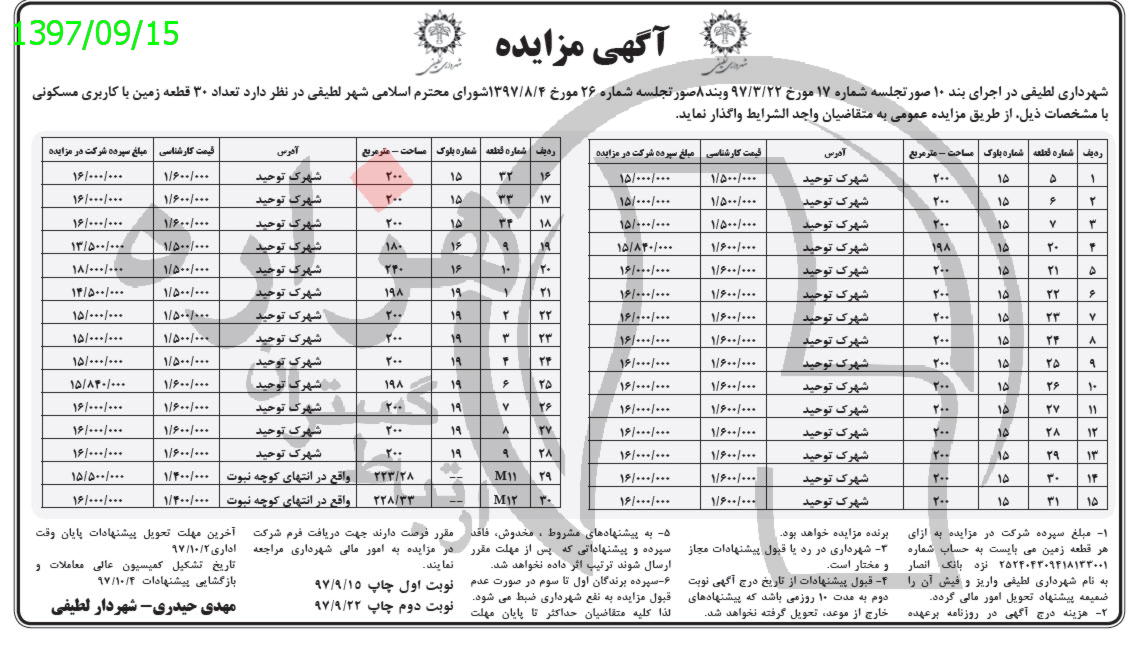 1397/09/15
آگهی مزایده
شهرداری لطیفی در اجرای بند ۱۰ صورتجلسه شماره ۱۷ مورخ ۹۷/۳/۲۲ وبند۸صورتجلسه شماره ۲۶ مورخ ۱۳۹۷/۸/۴شورای محترم اسلامی شهر لطیفی در نظر دارد تعداد ۳۰ قطعه زمین با کاربری مسکونی
با مشخصات ذیل، از طریق مزایده عمومی به متقاضیان واجد الشرایط واگذار نماید.
ردیف شماره قطعه شماره بلوک مساحت – مترمربع آدرس قیمت کارشناسی مبلغ سپرده شرکت در مزایده
۱ ۵ ۱۵ ۲۰۰ شهرک توحید ۱/۵۰۰/۰۰۰ ۱۵/۰۰۰/۰۰۰
۲ ۶ ۱۵ ۲۰۰ شهرک توحید ۱/۵۰۰/۰۰۰ ۱۵/۰۰۰/۰۰۰
۳ ۷ ۱۵ ۲۰۰ شهرک توحید ۱/۵۰۰/۰۰۰ ۱۵/۰۰۰/۰۰۰
۴ ۲۰ ۱۵ ۱۹۸ شهرک توحید ۱/۶۰۰/۰۰۰ ۱۵/۸۴۰/۰۰۰
۵ ۲۱ ۱۵ ۲۰۰ شهرک توحید ۱/۶۰۰/۰۰۰ ۱۶/۰۰۰/۰۰۰
۶ ۲۲ ۱۵ ۲۰۰ شهرک توحید ۱/۶۰۰/۰۰۰ ۱۶/۰۰۰/۰۰۰
۷ ۲۳ ۱۵ ۲۰۰ شهرک توحید ۱/۶۰۰/۰۰۰ ۱۶/۰۰۰/۰۰۰
۸ ۲۴ ۱۵ ۲۰۰ شهرک توحید ۱/۶۰۰/۰۰۰ ۱۶/۰۰۰/۰۰۰
۹ ۲۵ ۱۵ ۲۰۰ شهرک توحید ۱/۶۰۰/۰۰۰ ۱۶/۰۰۰/۰۰۰
۱۰ ۲۶ ۱۵ ۲۰۰ شهرک توحید ۱/۶۰۰/۰۰۰ ۱۶/۰۰۰/۰۰۰
۱۱ ۲۷ ۱۵ ۲۰۰ شهرک توحید ۱/۶۰۰/۰۰۰ ۱۶/۰۰۰/۰۰۰
۱۲ ۲۸ ۱۵ ۲۰۰ شهرک توحید ۱/۶۰۰/۰۰۰ ۱۶/۰۰۰/۰۰۰
۱۳ ۲۹ ۱۵ ۲۰۰ شهرک توحید ۱/۶۰۰/۰۰۰ ۱۶/۰۰۰/۰۰۰
۱۴ ۳۰ ۱۵ ۲۰۰ شهرک توحید ۱/۶۰۰/۰۰۰ ۱۶/۰۰۰/۰۰۰
۱۵ ۳۱ ۱۵ ۲۰۰ شهرک توحید ۱/۶۰۰/۰۰۰ ۱۶/۰۰۰/۰۰۰
ردیف شماره قطعه شماره بلوک مساحت – مترمربع آدرس قیمت کارشناسی مبلغ سپرده شرکت در مزایده
۱۶ ۳۲ ۱۵ ۲۰۰ شهرک توحید ۱/۶۰۰/۰۰۰ ۱۶/۰۰۰/۰۰۰
۱۷ ۳۳ ۱۵ ۲۰۰ شهرک توحید ۱/۶۰۰/۰۰۰ ۱۶/۰۰۰/۰۰۰
۱۸ ۳۴ ۱۵ ۲۰۰ شهرک توحید ۱/۶۰۰/۰۰۰ ۱۶/۰۰۰/۰۰۰
۱۹ ۹ ۱۶ ۱۸۰ شهرک توحید ۱/۵۰۰/۰۰۰ ۱۳/۵۰۰/۰۰۰
۲۰ ۱۰ ۱۶ ۲۴۰ شهرک توحید ۱/۵۰۰/۰۰۰ ۱۸/۰۰۰/۰۰۰
۲۱ ۱ ۱۹ ۱۹۸ شهرک توحید ۱/۵۰۰/۰۰۰ ۱۴/۵۰۰/۰۰۰
۲۲ ۲ ۱۹ ۲۰۰ شهرک توحید ۱/۵۰۰/۰۰۰ ۱۵/۰۰۰/۰۰۰
۲۳ ۳ ۱۹ ۲۰۰ شهرک توحید ۱/۵۰۰/۰۰۰ ۱۵/۰۰۰/۰۰۰
۲۴ ۴ ۱۹ ۲۰۰ شهرک توحید ۱/۵۰۰/۰۰۰ ۱۵/۰۰۰/۰۰۰
۲۵ ۶ ۱۹ ۱۹۸ شهرک توحید ۱/۶۰۰/۰۰۰ ۱۵/۸۴۰/۰۰۰
۲۶ ۷ ۱۹ ۲۰۰ شهرک توحید ۱/۶۰۰/۰۰۰ ۱۶/۰۰۰/۰۰۰
۲۷ ۸ ۱۹ ۲۰۰ شهرک توحید ۱/۶۰۰/۰۰۰ ۱۶/۰۰۰/۰۰۰
۲۸ ۹ ۱۹ ۲۰۰ شهرک توحید ۱/۶۰۰/۰۰۰ ۱۶/۰۰۰/۰۰۰
۲۹ M۱۱ -- ۲۲۳/۲۸ واقع در انتهای کوچه نبوت ۱/۴۰۰/۰۰۰ ۱۵/۵۰۰/۰۰۰
۳۰ M۱۲ -- ۲۲۸/۳۳ واقع در انتهای کوچه نبوت ۱/۴۰۰/۰۰۰ ۱۶/۰۰۰/۰۰۰
۱- مبلغ سپرده شرکت در مزایده به ازای
هر قطعه زمین می بایست به حساب شماره
۲۵۲۴۰۴۳۰۹۴۱۸۱۳۳۰۰۱ نزد بانک انصار
به نام شهرداری لطیفی واریز و فیش آن را
ضمیمه پیشنهاد تحویل امور مالی گردد.
۲- هزینه درج آگهی در روزنامه برعهده
برنده مزایده خواهد بود.
۳- شهرداری در رد یا قبول پیشنهادات مجاز
و مختار است.
۴- قبول پیشنهادات از تاریخ درج آگهی نوبت
دوم به مدت ۱۰ روزمی باشد که پیشنهادهای
خارج از موعد، تحویل گرفته نخواهد شد.
۵- به پیشنهادهای مشروط ، مخدوش، فاقد
سپرده و پیشنهاداتی که پس از مهلت مقرر
ارسال شوند ترتیب اثر داده نخواهد شد.
۶-سپرده برندگان اول تا سوم در صورت عدم
قبول مزایده به نفع شهرداری ضبط می شود.
لذا کلیه متقاضیان حداکثر تا پایان مهلت
مقرر فرصت دارند جهت دریافت فرم شرکت
در مزایده به امور مالی شهرداری مراجعه
نمایند.
نوبت اول چاپ ۹۷/۹/۱۵
نوبت دوم چاپ ۹۷/۹/۲۲
آخرین مهلت تحویل پیشنهادات پایان وقت
اداری۹۷/۱۰/۲
تاریخ تشکیل کمیسیون عالی معاملات و
بازگشایی پیشنهادات ۹۷/۱۰/۴
مهدی حیدری– شهردار لطیفی